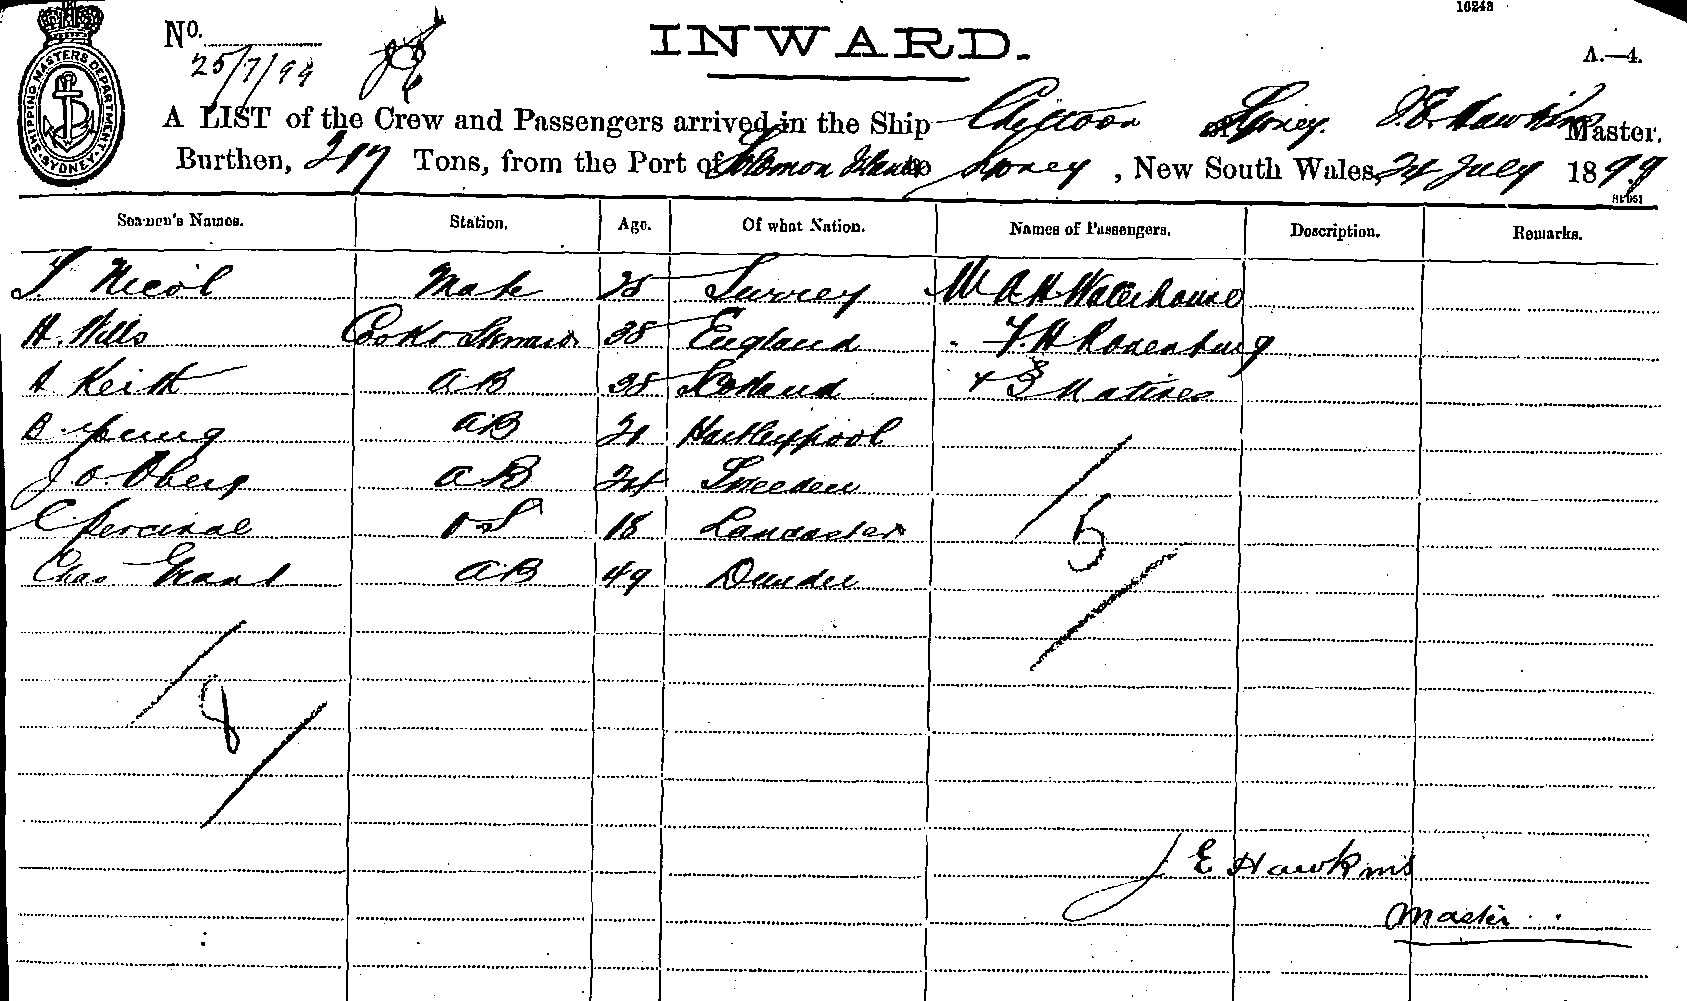 16248
No.
25/7/99
INWARD.
A.—4.
SHIPPING MASTERS DEPARTMENT. SYDNEY
A LIST of the Crew and Passengers arrived in the Ship Chittoor of Sydney. J. E. Hawkins Master.
Burthen, 217 Tons, from the Port of Solomon Islands to Sydney, New South Wales, 24 July 1899
Seamen's Names. Station. Age. Of what Nation. Names of Passengers. Description. Remarks.
T. Nicol Mate 25 Surrey Mr A H Waterhouse
H. Wills Cook & Steward 38 England " F. H Rosenburg
A Keith AB 38 Scotland + 3 Natives
B Young AB 21 Hartleypool
J O Oberg AB 24 Sweeden
C Percival OS 18 Lancaster
Chas Grant AB 49 Dundee
5
8
J E Hawkins
Master